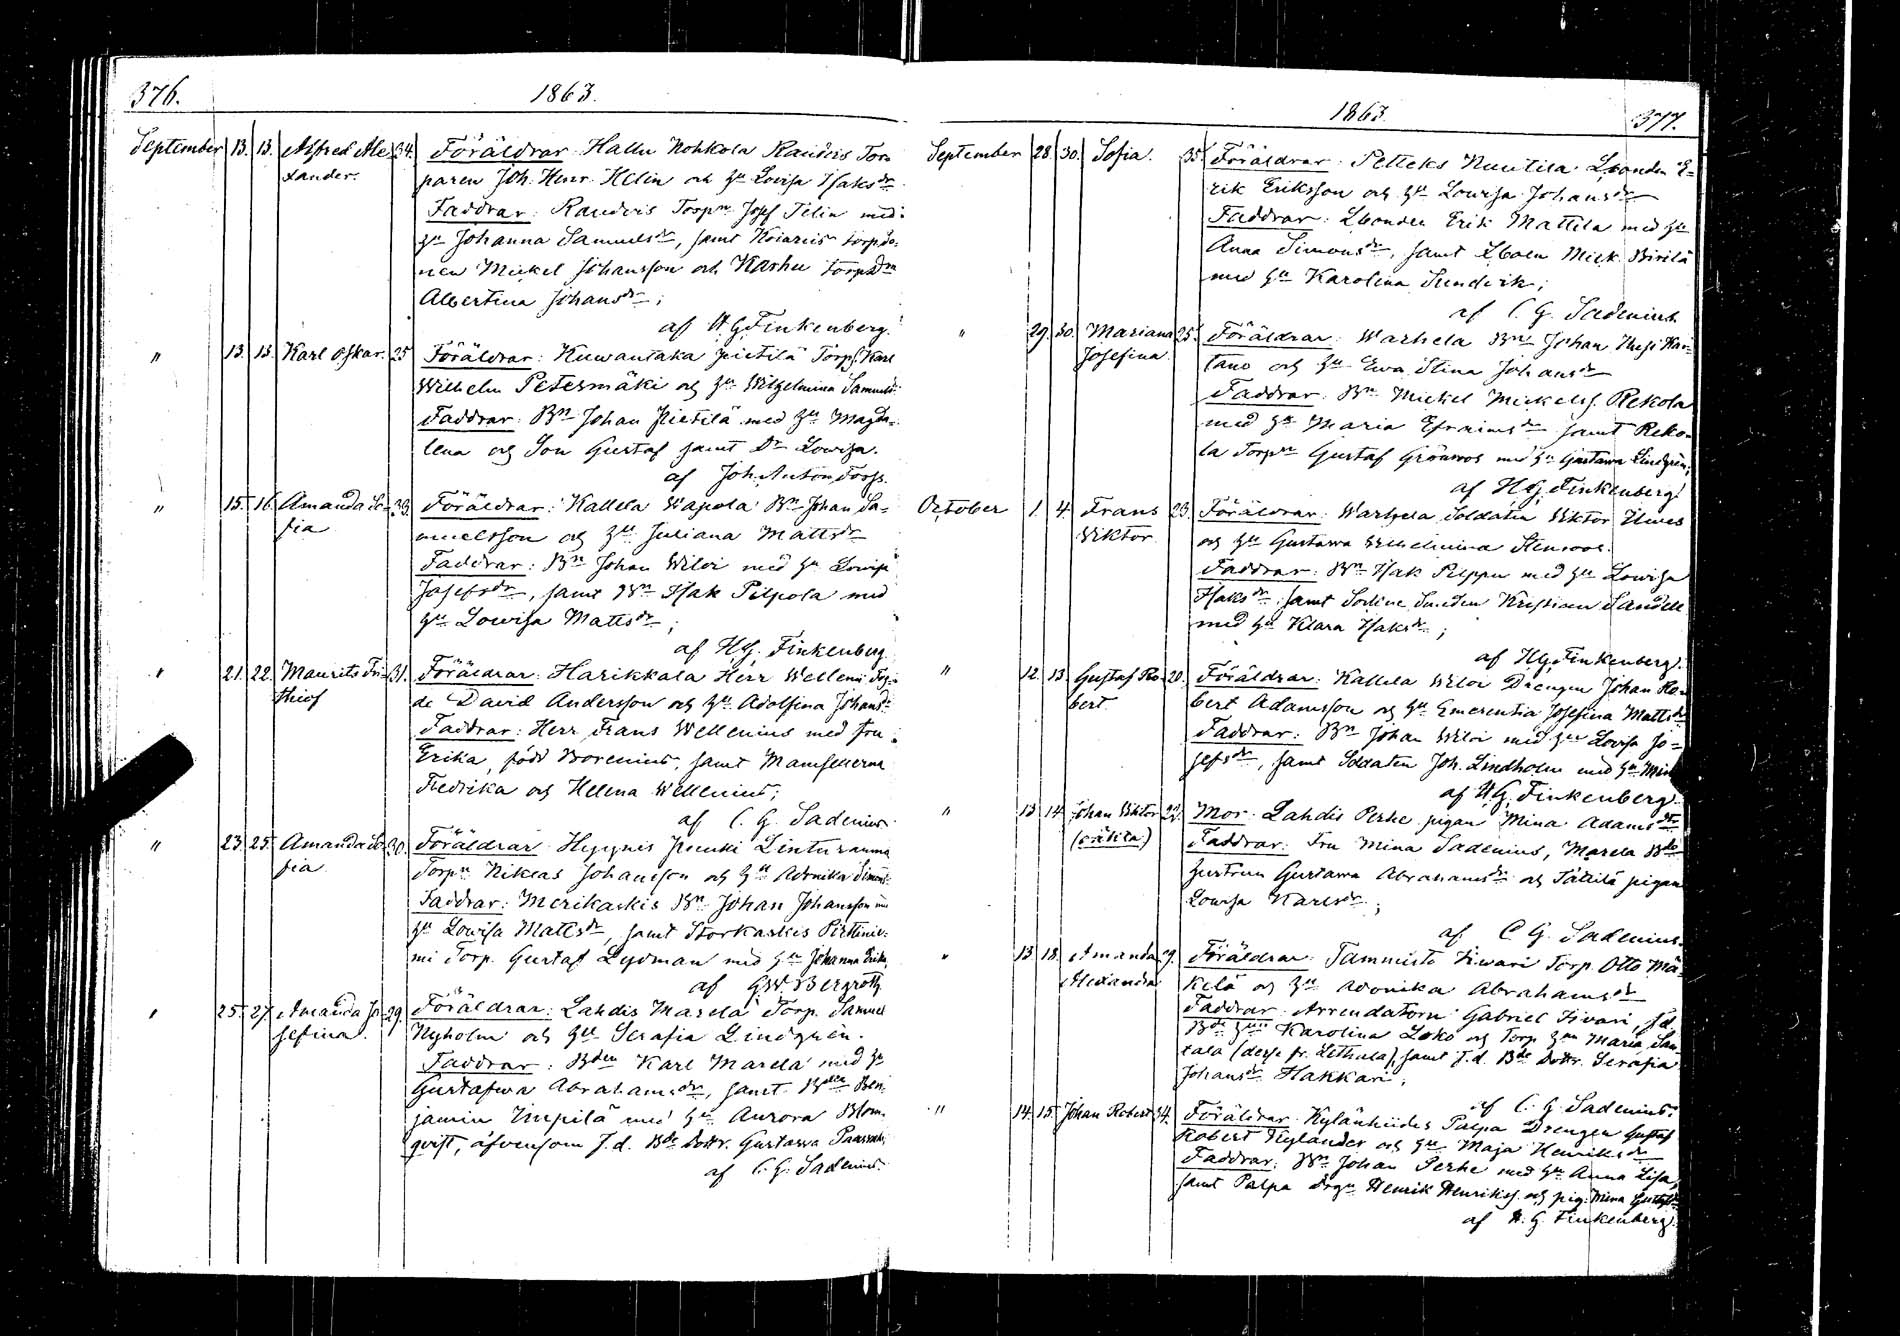 376. 1863.
September 13. 13. Alfred Ale- 34. Föräldrar: Hallu Nohkola Raudis Tor-
xander. paren Joh. Henr. Helin och Hu Lovisa Isaksdr
Faddrar: Torpn Josef Telin med
Hu Johanna Samuelsdr, samt torpso-
nen Mickel Johansson och Karhu Torpsdn
Albertina Johansdr;
af H G Finkenberg.
" 13. 13. Karl Oskar. 25 Föräldrar: Kuwantaka Pietilä Torps. Karl
Wilhelm Petersmäki och Hu Wilhelmina Samuelsdr
Faddrar: Bn Johan Pietilä med Hu Magda-
lena och Son Gustaf samt Dr Lowisa.
af Joh. Anton Forss.
" 15. 16. Amanda So- 33. Föräldrar: Kallela Wapola Bn Johan Sa-
fia muelsson och Hu Juliana Mattsdr
Faddrar: Bn Johan Wiloi med Hu Lowisa
Josefsdr, samt Bn Isak Pilpola med
Hu Lowisa Mattsdr;
af H G. Finkenberg
" 21. 22. Maurits Fri- 31. Föräldrar: Harikkala Herr Welleni Fog-
thiof de David Andersson och Hu Adolfina Johansdr
Faddrar: Herr Frans Wellenius med fru
Erika, född Borenius, samt Mamsellerna
Fredrika och Helena Wellenius;
af C. G. Sadenius
" 23. 25. Amanda So- 30. Föräldrar: Linturauma
fia Torpn Niklas Johansson och Hu Adonika Simonsdr
Faddrar: Merikaskis Bn Johan Johansson med
Hu Lowisa Mattsdr, samt Storkaskis Pirttinie-
mi Torp. Gustaf Lydman med Hu Johanna Eriksdr
af G W. Bergroth
" 25. 27. Amanda Jo- 29. Föräldrar: Lahdis Marela Torp. Samuel
sefina. Nyholm och Hu Serafia Lindgrén.
Faddrar: Bden Karl Marela med Hu
Gustafwa Abrahamsdr, samt Bden Ben-
jamin Impilä med Hu Aurora Blom-
qvist, äfvensom f.d. Bde Dottr. Gustawa
af C. G. Sadenius.
1863. 377.
September 28. 30. Sofia. 35. Föräldrar: Petteks Nuutila Lbonden E-
rik Eriksson och Hu Lowisa Johansdr
Faddrar: Lbonden Erik Mattila med Hu
Anna Simonsdr, samt Lboen Mick. Birilä
med Hu Karolina Sundvik;
af C. G. Sadenius.
" 29. 30. Mariana 25. Föräldrar: Warhela Bn Johan Kar-
Josefina. tano och Hu Ewa Stina Johansdr
Faddrar: Bn Mickel Mickelss. Rekola
med Hu Maria Efraimsdr samt Reko-
la Torpn Gustaf Grönroos med Hu Gustawa Lindgrén;
af H G. Finkenberg.
October 1. 4. Frans 23. Föräldrar: Warhela Soldaten Viktor Ilmes
Wiktor och Hu Gustawa Wilhelmina Stenroos.
Faddrar: Bn Isak Pilppu med Hu Lowisa
Isaksdr samt Kristian Sandell
med Hu Klara Isaksdr;
af H G Finkenberg.
" 12. 13. Gustaf Ro- 20. Föräldrar: Kallela Wiloi Drengen Johan Ro-
bert bert Adamsson och Hu Emerentia Josefina Mattsdr
Faddrar: Bn Johan Wiloi med Hu Lovisa Jo-
sefsdr, samt Soldaten Joh. Lindholm med Hu
af H G. Finkenberg.
" 13 14 Johan Viktor 22. Mor: Lahdis Perhe pigan Mina Adamsdr
(oäkta) Faddrar: Fru Mina Sadenius, Marela Bde
hustrun Gustawa Abrahamsdr och Tätilä pigan
Lowisa Karlsdr;
af C G. Sadenius.
" 13 18. Amanda 29. Föräldrar: Tammisto Siwari Torp. Otto Mä-
Alexandra kelä och Hu Adonika Abrahamsdr
Faddrar: Arrendatorn Gabriel Siwari, f.d.
Bde Hun Karolina Loko och Torp Hun Maria San-
tala (desse fr. Lethala), samt f.d. Bde Dottr. Serafia
Johansdr Hakkari;
af C. G. Sadenius.
" 14. 15. Johan Robert 34. Föräldrar: Kylänhiides Palpa Drengen Gustaf
Robert Kylander och Hu Maja Henriksdr
Faddrar: Bn Johan Perhe med Hu Anna Lisa,
samt Palpa drgn Henrik Henrikss. och pig. Mina Gustafsdr
af H. G. Finkenberg.